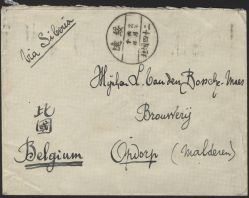 via Siberia
L. Van den Bossche-Maes
Brouwerij
比
國
Belgium Opdorp (Malderen)